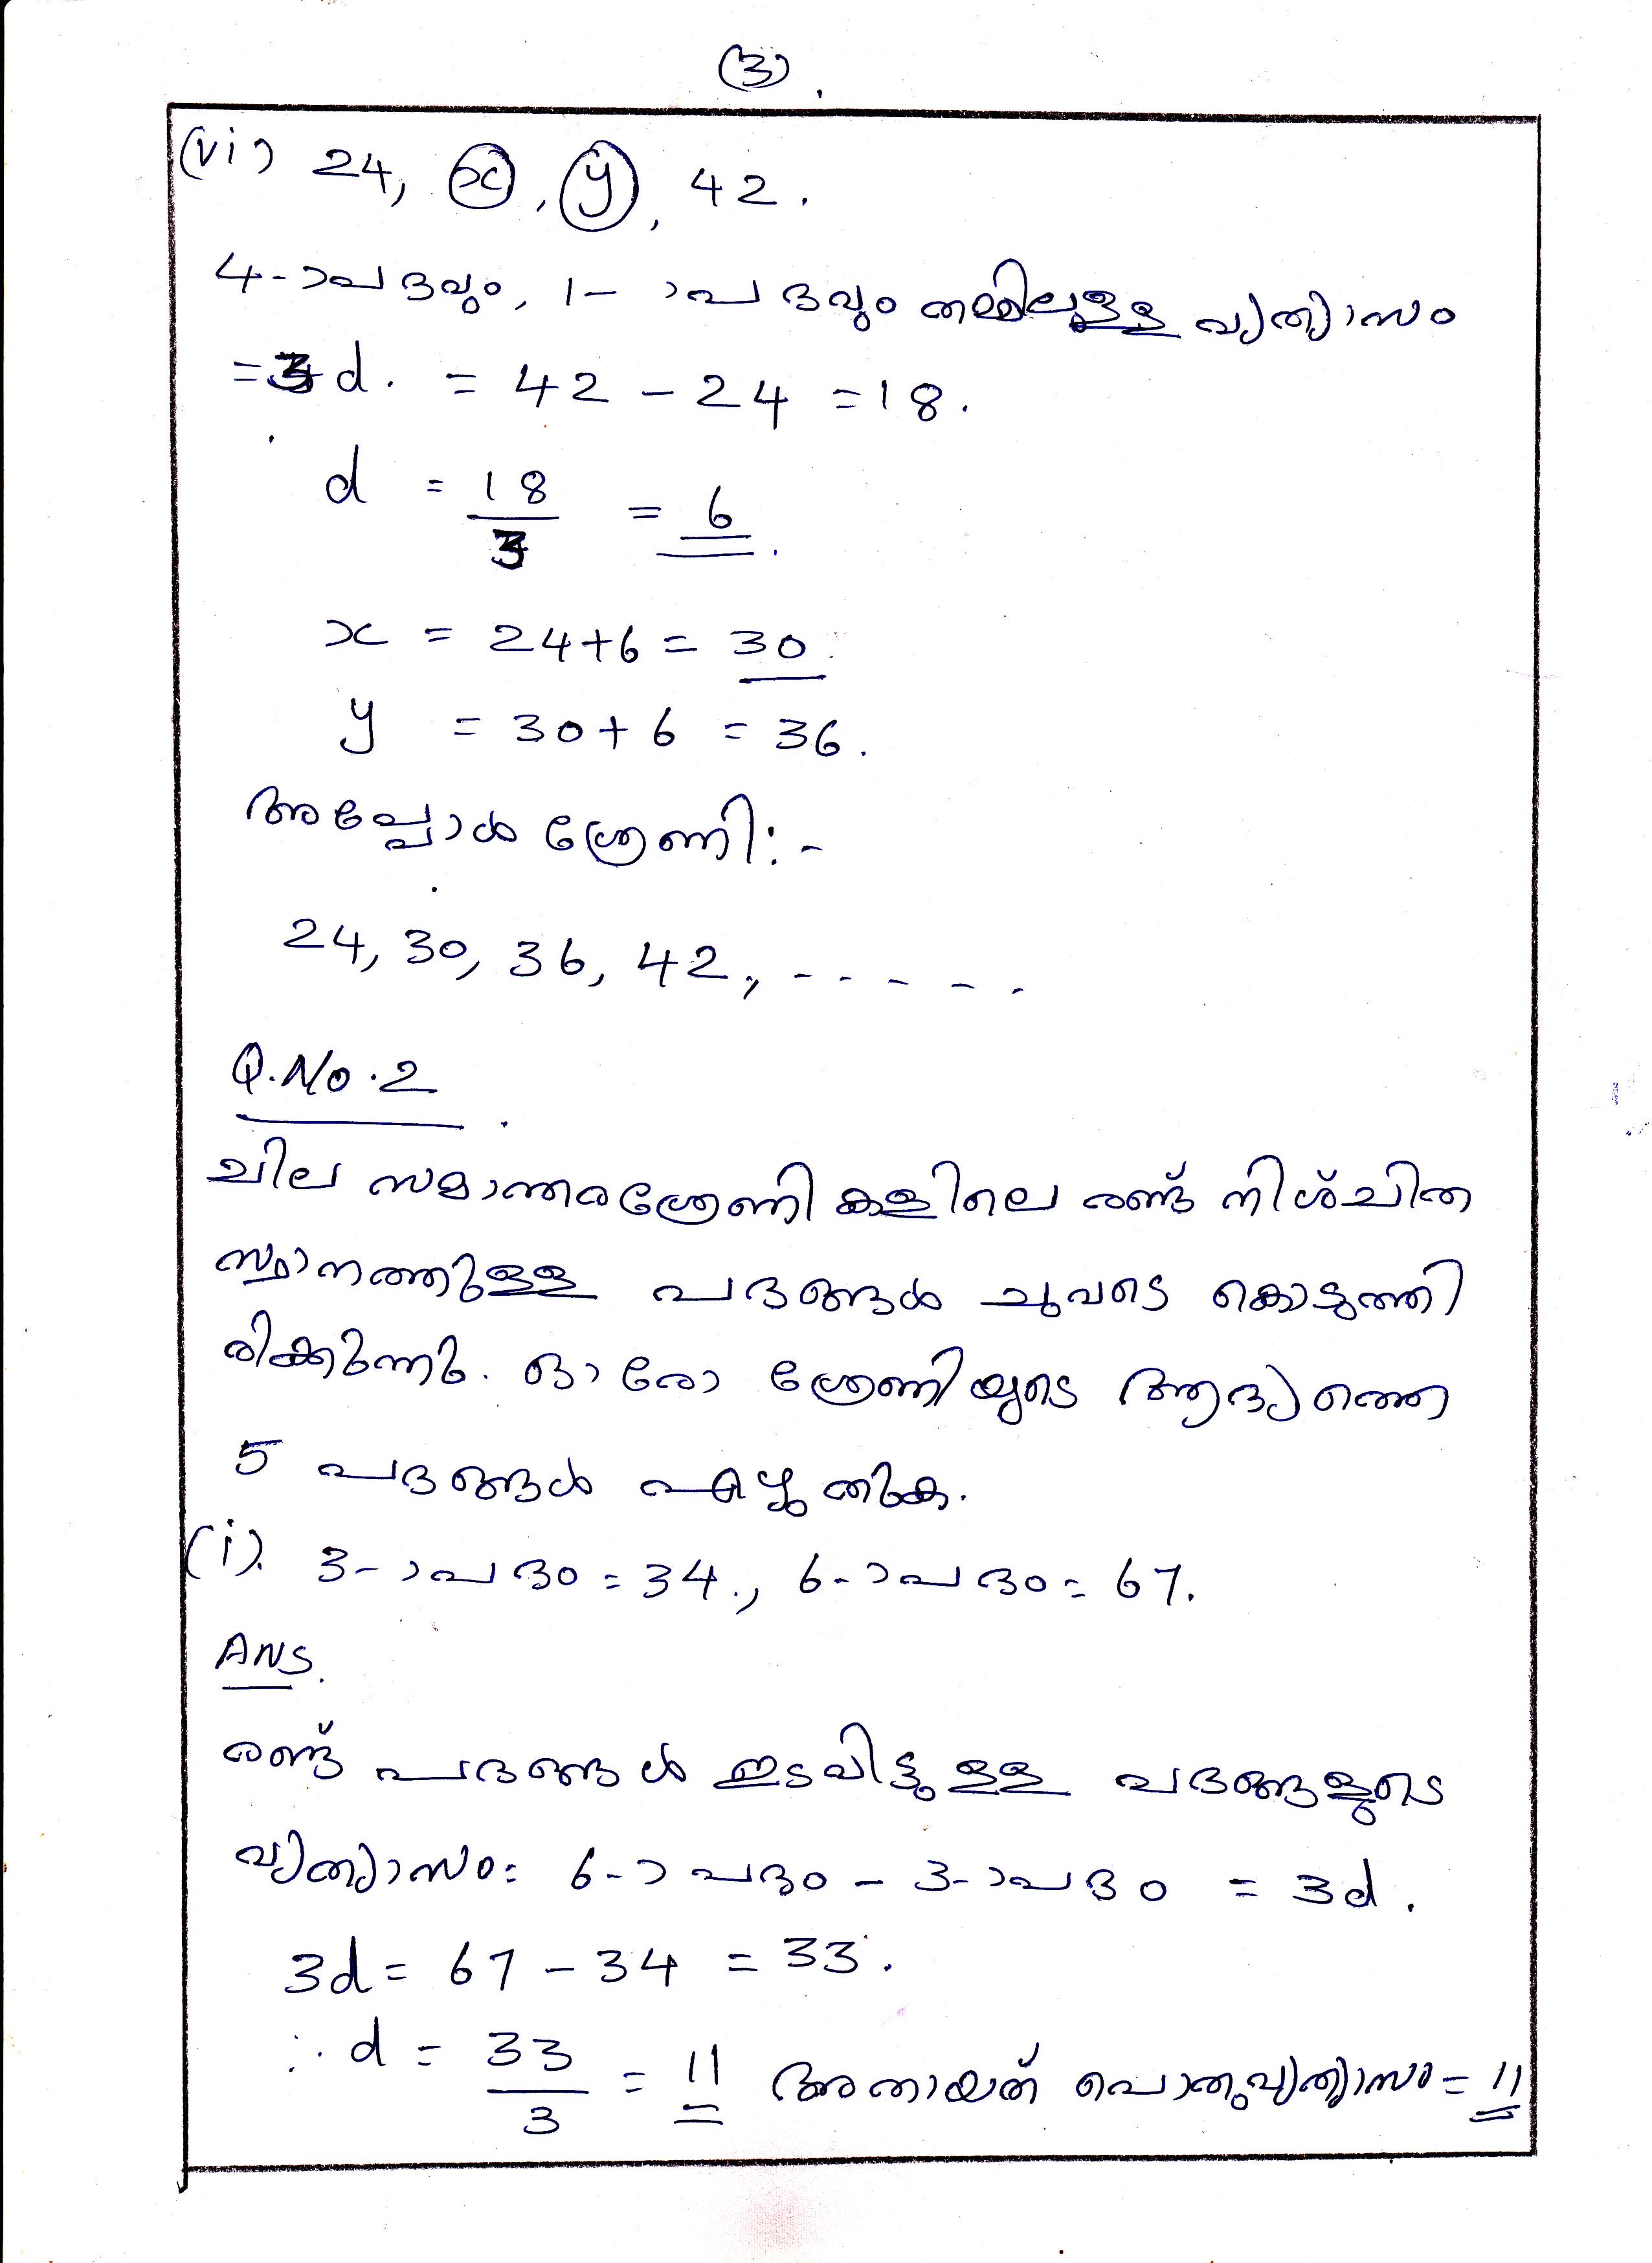 (3).
(vi) 24, x, y, 42.
4-ാം പദവും, 1-ാം പദവും തമ്മിലുള്ള വ്യത്യാസം
= 3d. = 42 - 24 = 18.
d = 18/3 = 6.
x = 24+6 = 30
y = 30+6 = 36.
അപ്പോൾ ശ്രേണി:-
24, 30, 36, 42, - - - - -
Q.No.2
ചില സമാന്തരശ്രേണികളിലെ രണ്ട് നിശ്ചിത
സ്ഥാനത്തുള്ള പദങ്ങൾ ചുവടെ കൊടുത്തി
രിക്കുന്നു. ഓരോ ശ്രേണിയുടെ ആദ്യത്തെ
5 പദങ്ങൾ എഴുതുക.
(i). 3-ാം പദം = 34., 6-ാം പദം = 67.
ANS.
രണ്ട് പദങ്ങൾ ഇടവിട്ടുള്ള പദങ്ങളുടെ
വ്യത്യാസം: 6-ാം പദം - 3-ാം പദം = 3d.
3d = 67 - 34 = 33.
∴ d = 33/3 = 11 അതായത് പൊതുവ്യത്യാസം = 11